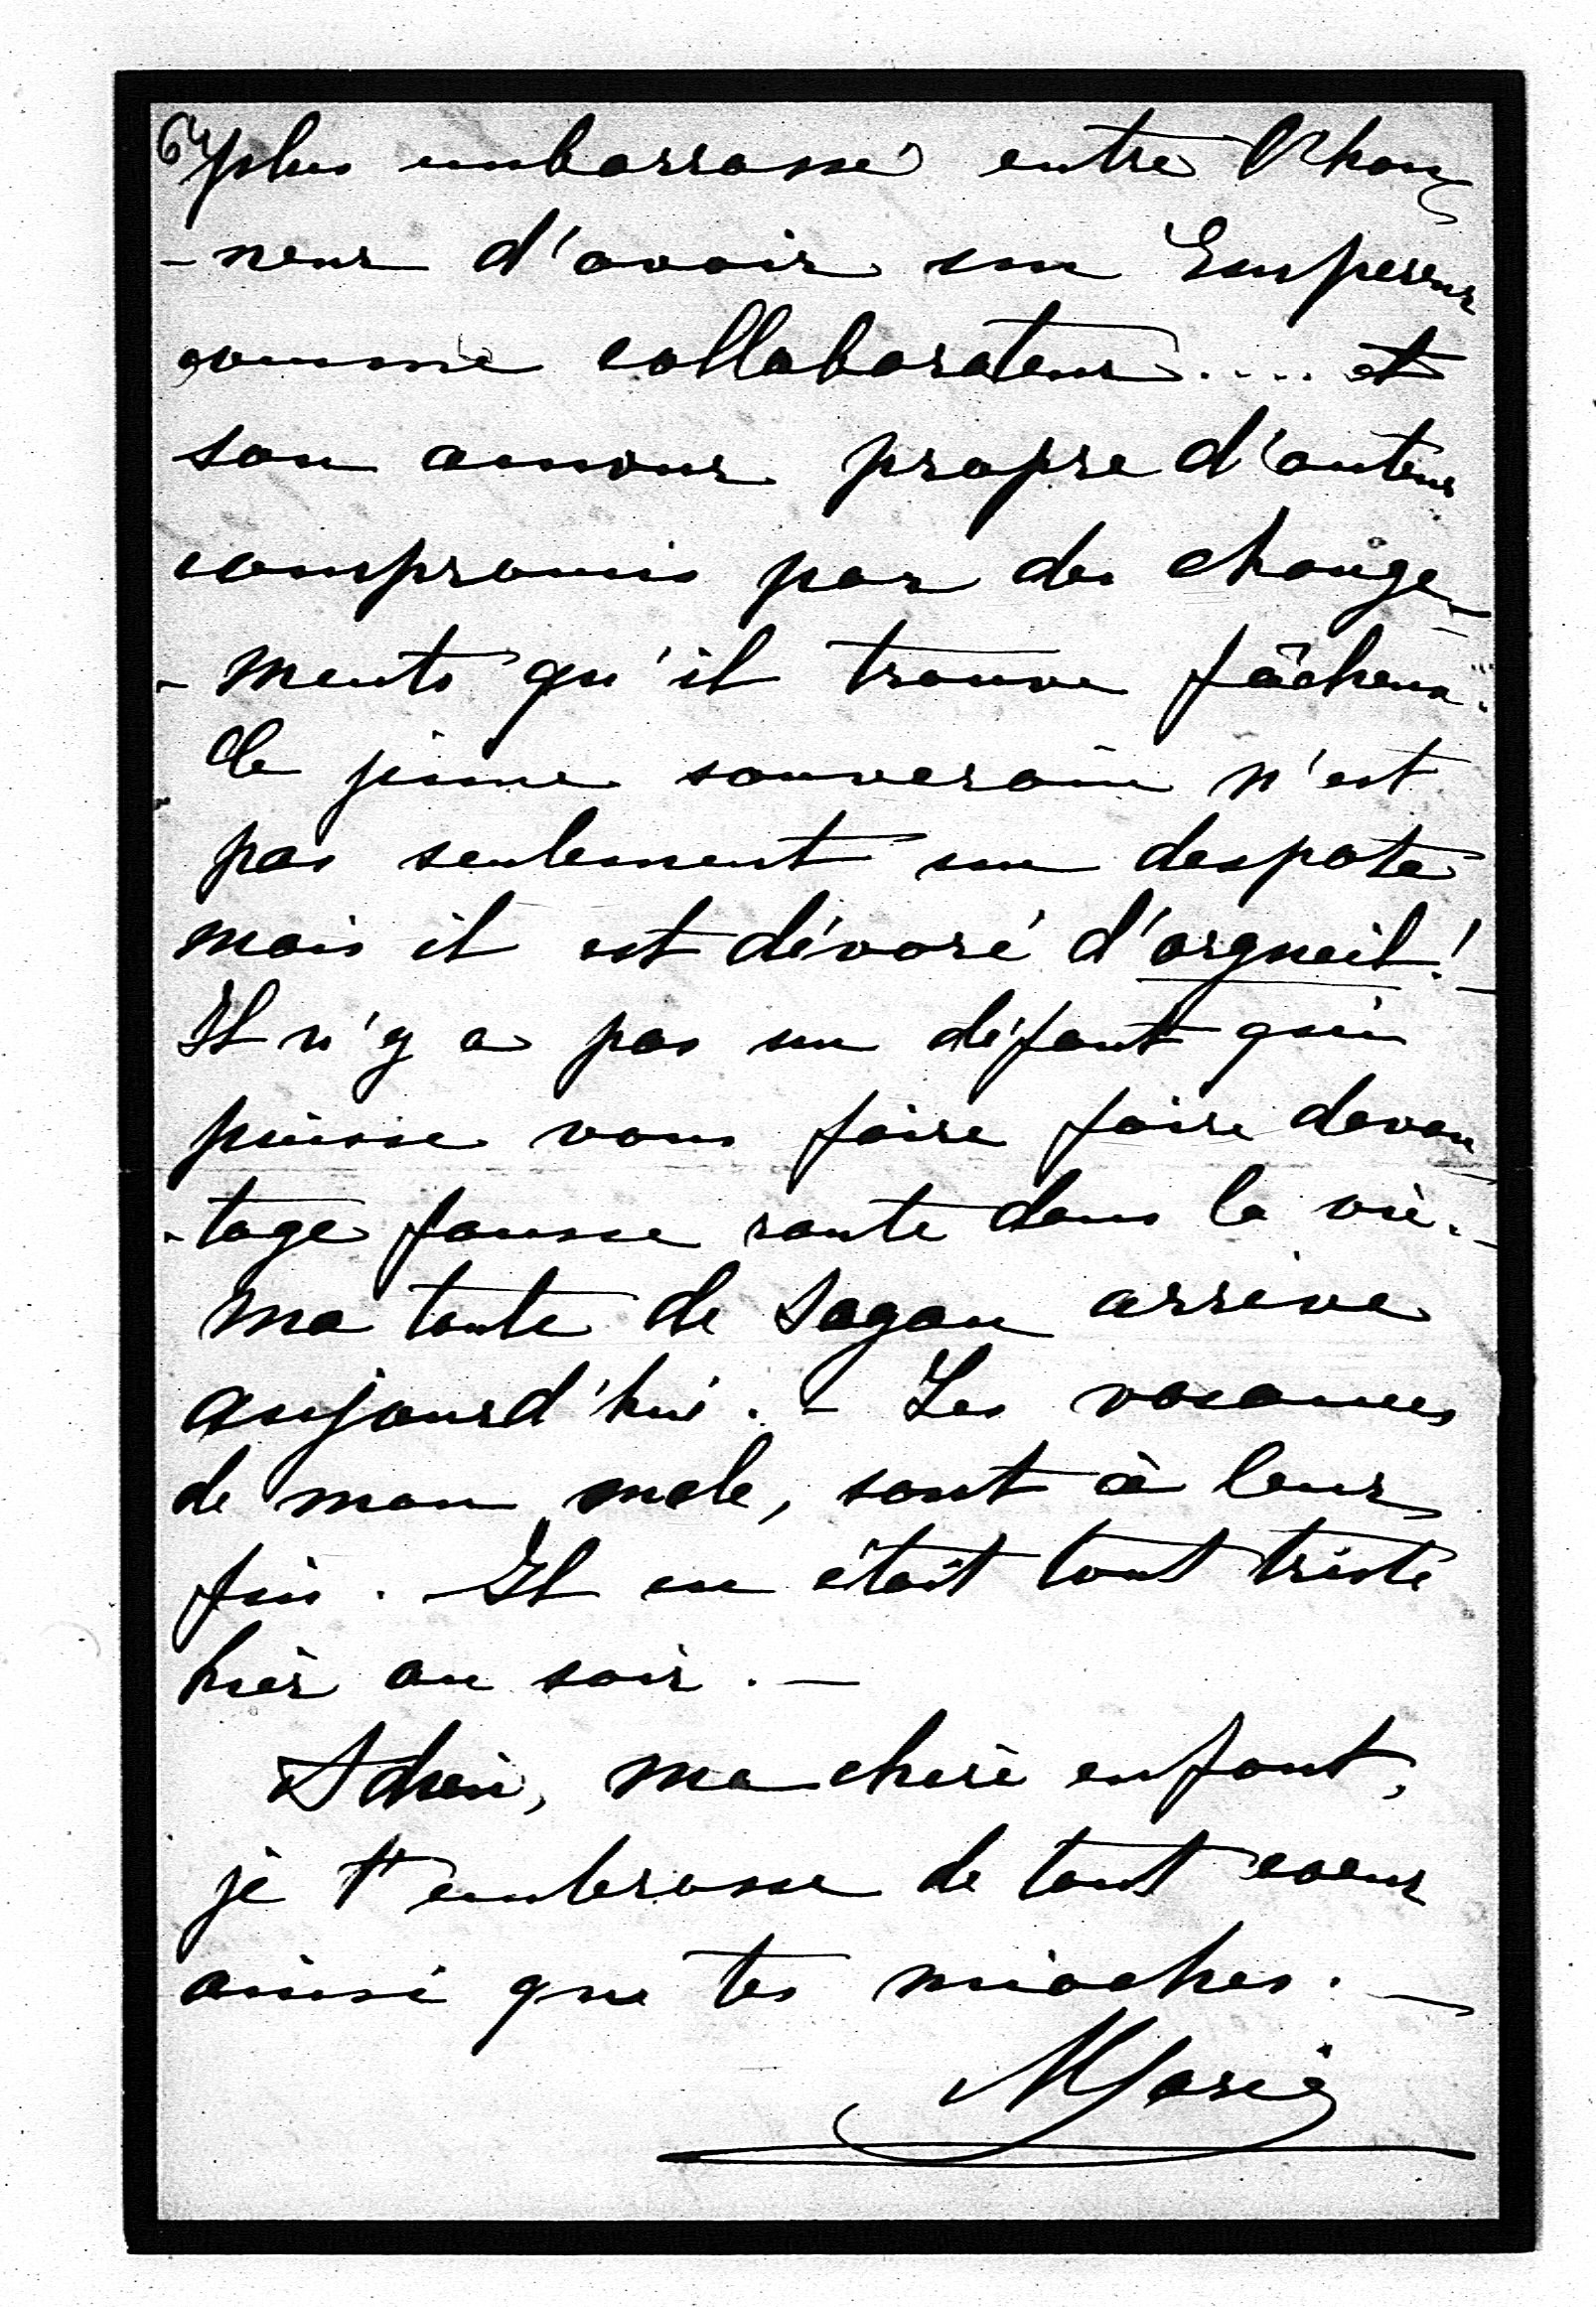 6/ plus embarrassé entre l'hon
-neur d'avoir un Empereur
comme collaborateur..... et
son amour propre d'auteur
compromis par des change-
-ments qu'il trouve fâcheux.
Le jeune souverain n'est
pas seulement un despote
mais il est dévoré d'orgueil! _
Il n'y a pas un défaut qui
puisse vous faire faire davan
-tage fausse route dans la vie. _
ma tante de Sagan arrive
aujourd'hui. - Les vacances
de mon mâle, sont à leur
fin. Il en était tout triste
hier au soir. —
Adieu, ma chère enfant,
je t'embrasse de tout cœur
ainsi que tes mioches. —
Marie